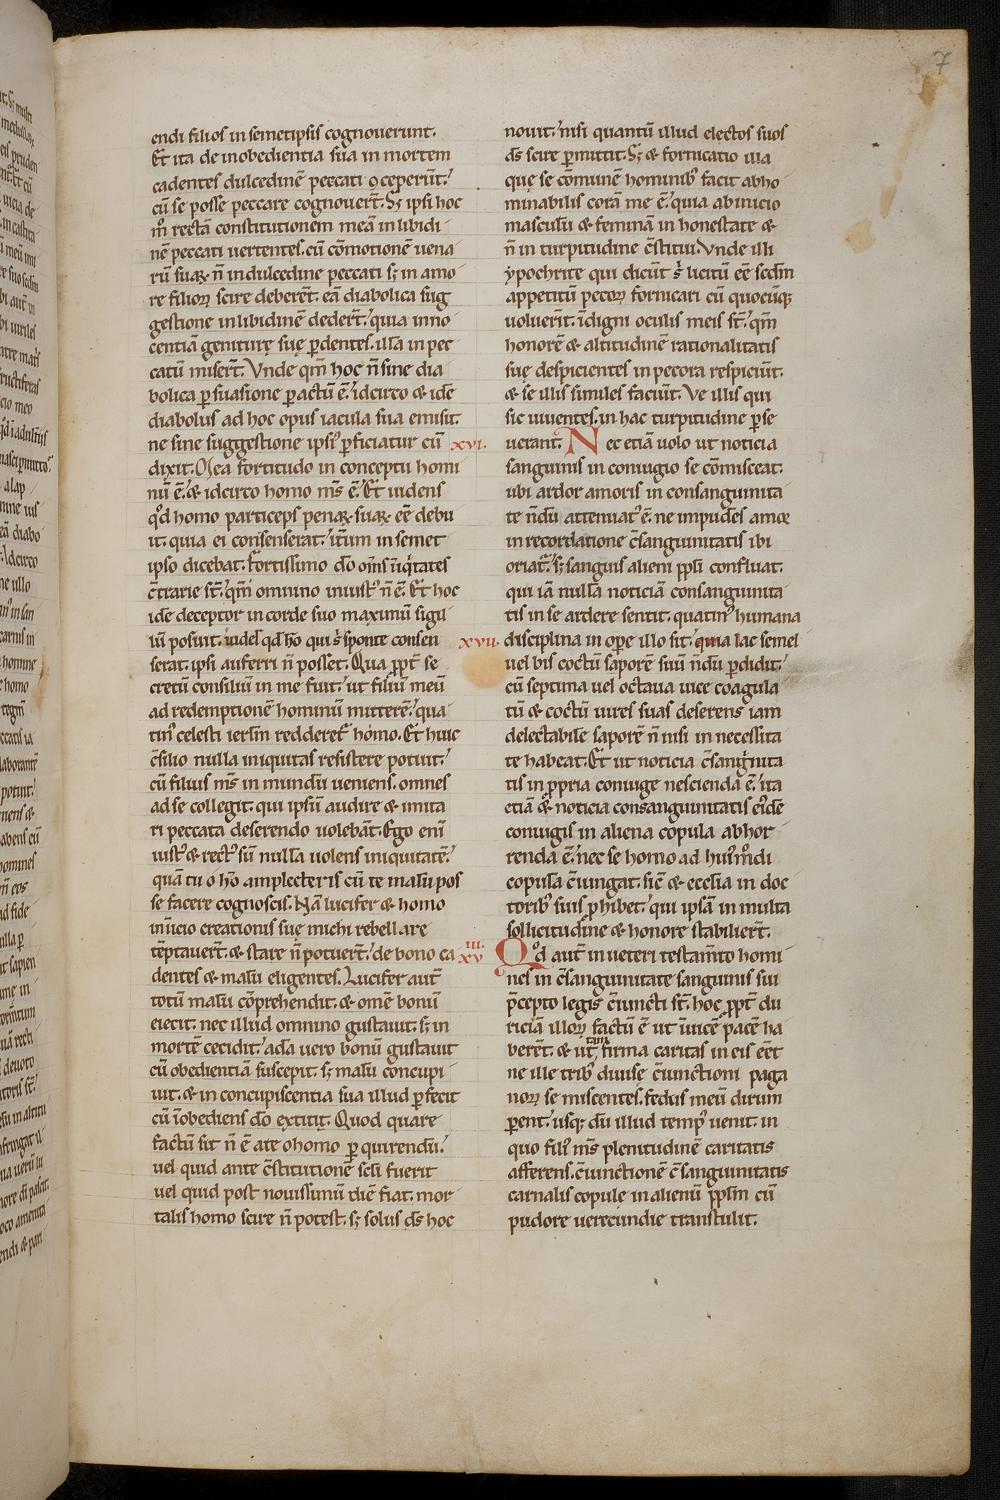 7
endi filios in semetipsis cognouerunt.
Et ita de inobedientia sua in mortem
cadentes dulcedinē peccati ꝯceperūt.
cū se posse peccare cognouer̄t. Sꝫ ipsi hoc
m̊ rectā constitutionem meā in libidi
nē peccati uertentes. cū cōmotionē uena
rū suaꝝ n̄ in dulcedine peccati sꝫ in amo
re filioꝝ scire deberēt. eā diabolica sug
gestione in libidinē deder̄t. quia inno
centiā geniturę suę ꝑdentes. illā in pec
catū miser̄t. Vnde qm̄ hoc n̄ sine dia
bolica ꝑsuasione ꝑactū ē. idcirco & idē
diabolus ad hoc opus iacula sua emisit.
ne sine suggestione ipsiꝰ ꝑficiatur cū
dixit. Mea fortitudo in conceptu homi
nū ē. & idcirco homo m̄s ē. Et uidens
qd̓ homo particeps penaꝝ suaꝝ eē debu
it. quia ei consenserat. itū̄m in semet
ipso dicebat. Fortissimo dō om̄s iniq̇tates
c̄trarie st̄. qm̄ omnino iniustꝰ n̄ ē. Et hoc
idē deceptor in corde suo maximū sigil
lū posuit. uidel̄ qd̄ hō qui s̓ sponte consen
serat. ipsi auferri n̄ posset. Qua ꝓpt̄ se
cretū consiliū in me fuit. ut filiū meū
ad redemptionē hominū mitterē. qua
tin̄ celesti ierlm̄ redderet̄ homo. Et huic
c̄silio nulla iniquitas resistere potuit.
cū filius m̄s in mundū ueniens. omnes
ad se collegit. qui ipsū audire & imita
ri peccata deserendo uolebāt. Ego eni
iustꝰ & rectꝰ sū nullā uolens iniquitatē.
quā tu o hō amplecteris cū te malū pos
se facere cognoscis. Nā lucifer & homo
in īicio creationis suę michi rebellare
tēptauer̄t. & stare n̄ potuer̄t. de bono ca
dentes & malū eligentes. Lucifer aut̄
totū malū cōprehendit. & omē bonū
eiecit. nec illud omnino gustauit. sꝫ in
mortē cecidit. adā uero bonū gustauit
cū obedientiā suscepit. sꝫ malū concupi
uit. & in concupiscentia sua illud ꝑfecit
cū īobediens dō extitit. Quod quare
factū sit n̄ ē a te o homo ꝑquirendū.
uel quid ante c̄stitutionē sc̄li fuerit
uel quid post nouissimū diē fiat. mor
talis homo scire n̄ potest. sꝫ solus d̄s hoc
nouit. nisi quantū illud electos suos
d̄s scire ꝑmittit. Sꝫ & fornicatio illa
quę se cōmunē hominibꝰ facit abho
minabilis corā me ē. quia ab inicio
masculū & feminā in honestate &
n̄ in turpitudine c̄stitui. Vnde illi
ypochrite qui dicūt s̓ licitū eē scdm̄
appetitū pecoꝝ fornicari cū quocūqꝫ
uoluerit. īdigni oculis meis st̄. qm̄
honorē & altitudinē rationalitatis
suę despicientes in pecora respiciūt.
& se illis similes faciūt. Ve illis qui
sic uiuentes. in hac turpitudine ꝑse
xvi.
uerant. Nec etiā uolo ut noticia
sanguinis in coniugio se cōmisceat.
ubi ardor amoris in consanguinita
te n̄dū attenuatꝰ ē. ne impudēs amor
in recordatione c̄sanguinitatis ibi
oriat̄. sꝫ sanguis alieni ppl̄i confluat.
qui iā nullā noticiā consanguinita
tis in se ardere sentit. quatin̄ humana
xvii.
disciplina in oꝑe illo sit. quia lac semel
uel bis coctū saporē suū n̄dū ꝑdidit.
cū septima uel octaua uice coagula
tū & coctū uires suas deserens iam
delectabile saporē n̄ nisi in necessita
te habeat. Et ut noticia c̄sang̓nita
tis in ꝓpria coniuge nescienda ē. ita
etiā & noticia consanguinitatis eidē
coniugis in aliena copula abhor
renda ē. nec se homo ad huiꝰmodi
copulā c̄iungat. sic̄ & ecclia in doc
toribꝰ suis ꝓhibet. qui ipsā in multa
sollicitudine & honore stabilier̄t.
xviii.
Qd̓ aut̄ in ueteri testam̄to homi
nes in c̄sanguinitate sanguinis sui
p̄cepto legis c̄iuncti st̄. hoc ꝓpt̄ du
riciā illoꝝ factū ē ut īuicē pacē ha
berēt. & ut tam firma caritas in eis eēt
ne ille tribꝰ diuise c̄iunctioni paga
noꝝ se miscentes. fedus meū dirum
ꝑent. usqꝫ dū illud tempꝰ uenit. in
quo filiꝰ m̄s plenitudinē caritatis
afferens. c̄iunctionē c̄sanguinitatis
carnalis copule in alienū ppl̄m cū
pudore uerecundie transtulit.